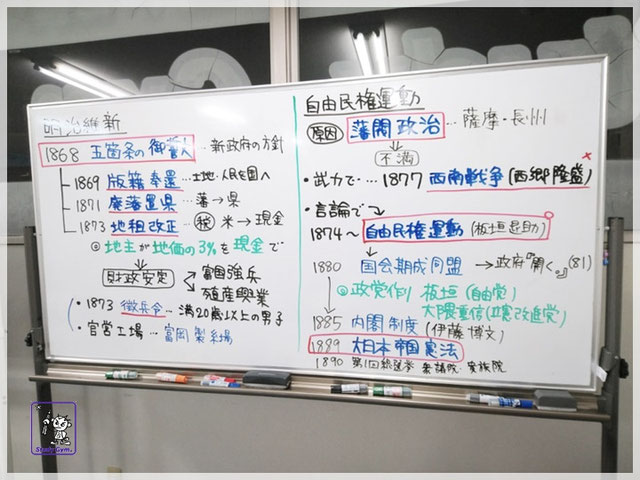 明治維新
1868 五箇条の御誓文 … 新政府の方針
1869 版籍奉還 … 土地・人民を国へ
1871 廃藩置県 … 藩→県
1873 地租改正 … 税 米→現金
◎地主が地価の3%を現金で
財政安定
富国強兵
殖産興業
・1873 徴兵令 … 満20歳以上の男子
・官営工場 … 富岡製糸場
自由民権運動
原因 藩閥政治 … 薩摩・長州
不満
・武力で … 1877 西南戦争 (西郷隆盛)
・言論で
1874〜 自由民権運動 (板垣退助)
1880 国会期成同盟 → 政府『開く。』(81)
◎政党作り 板垣(自由党)
大隈重信(立憲改進党)
1885 内閣制度 (伊藤博文)
1889 大日本帝国憲法
1890 第1回総選挙 衆議院・貴族院
Study Gym.